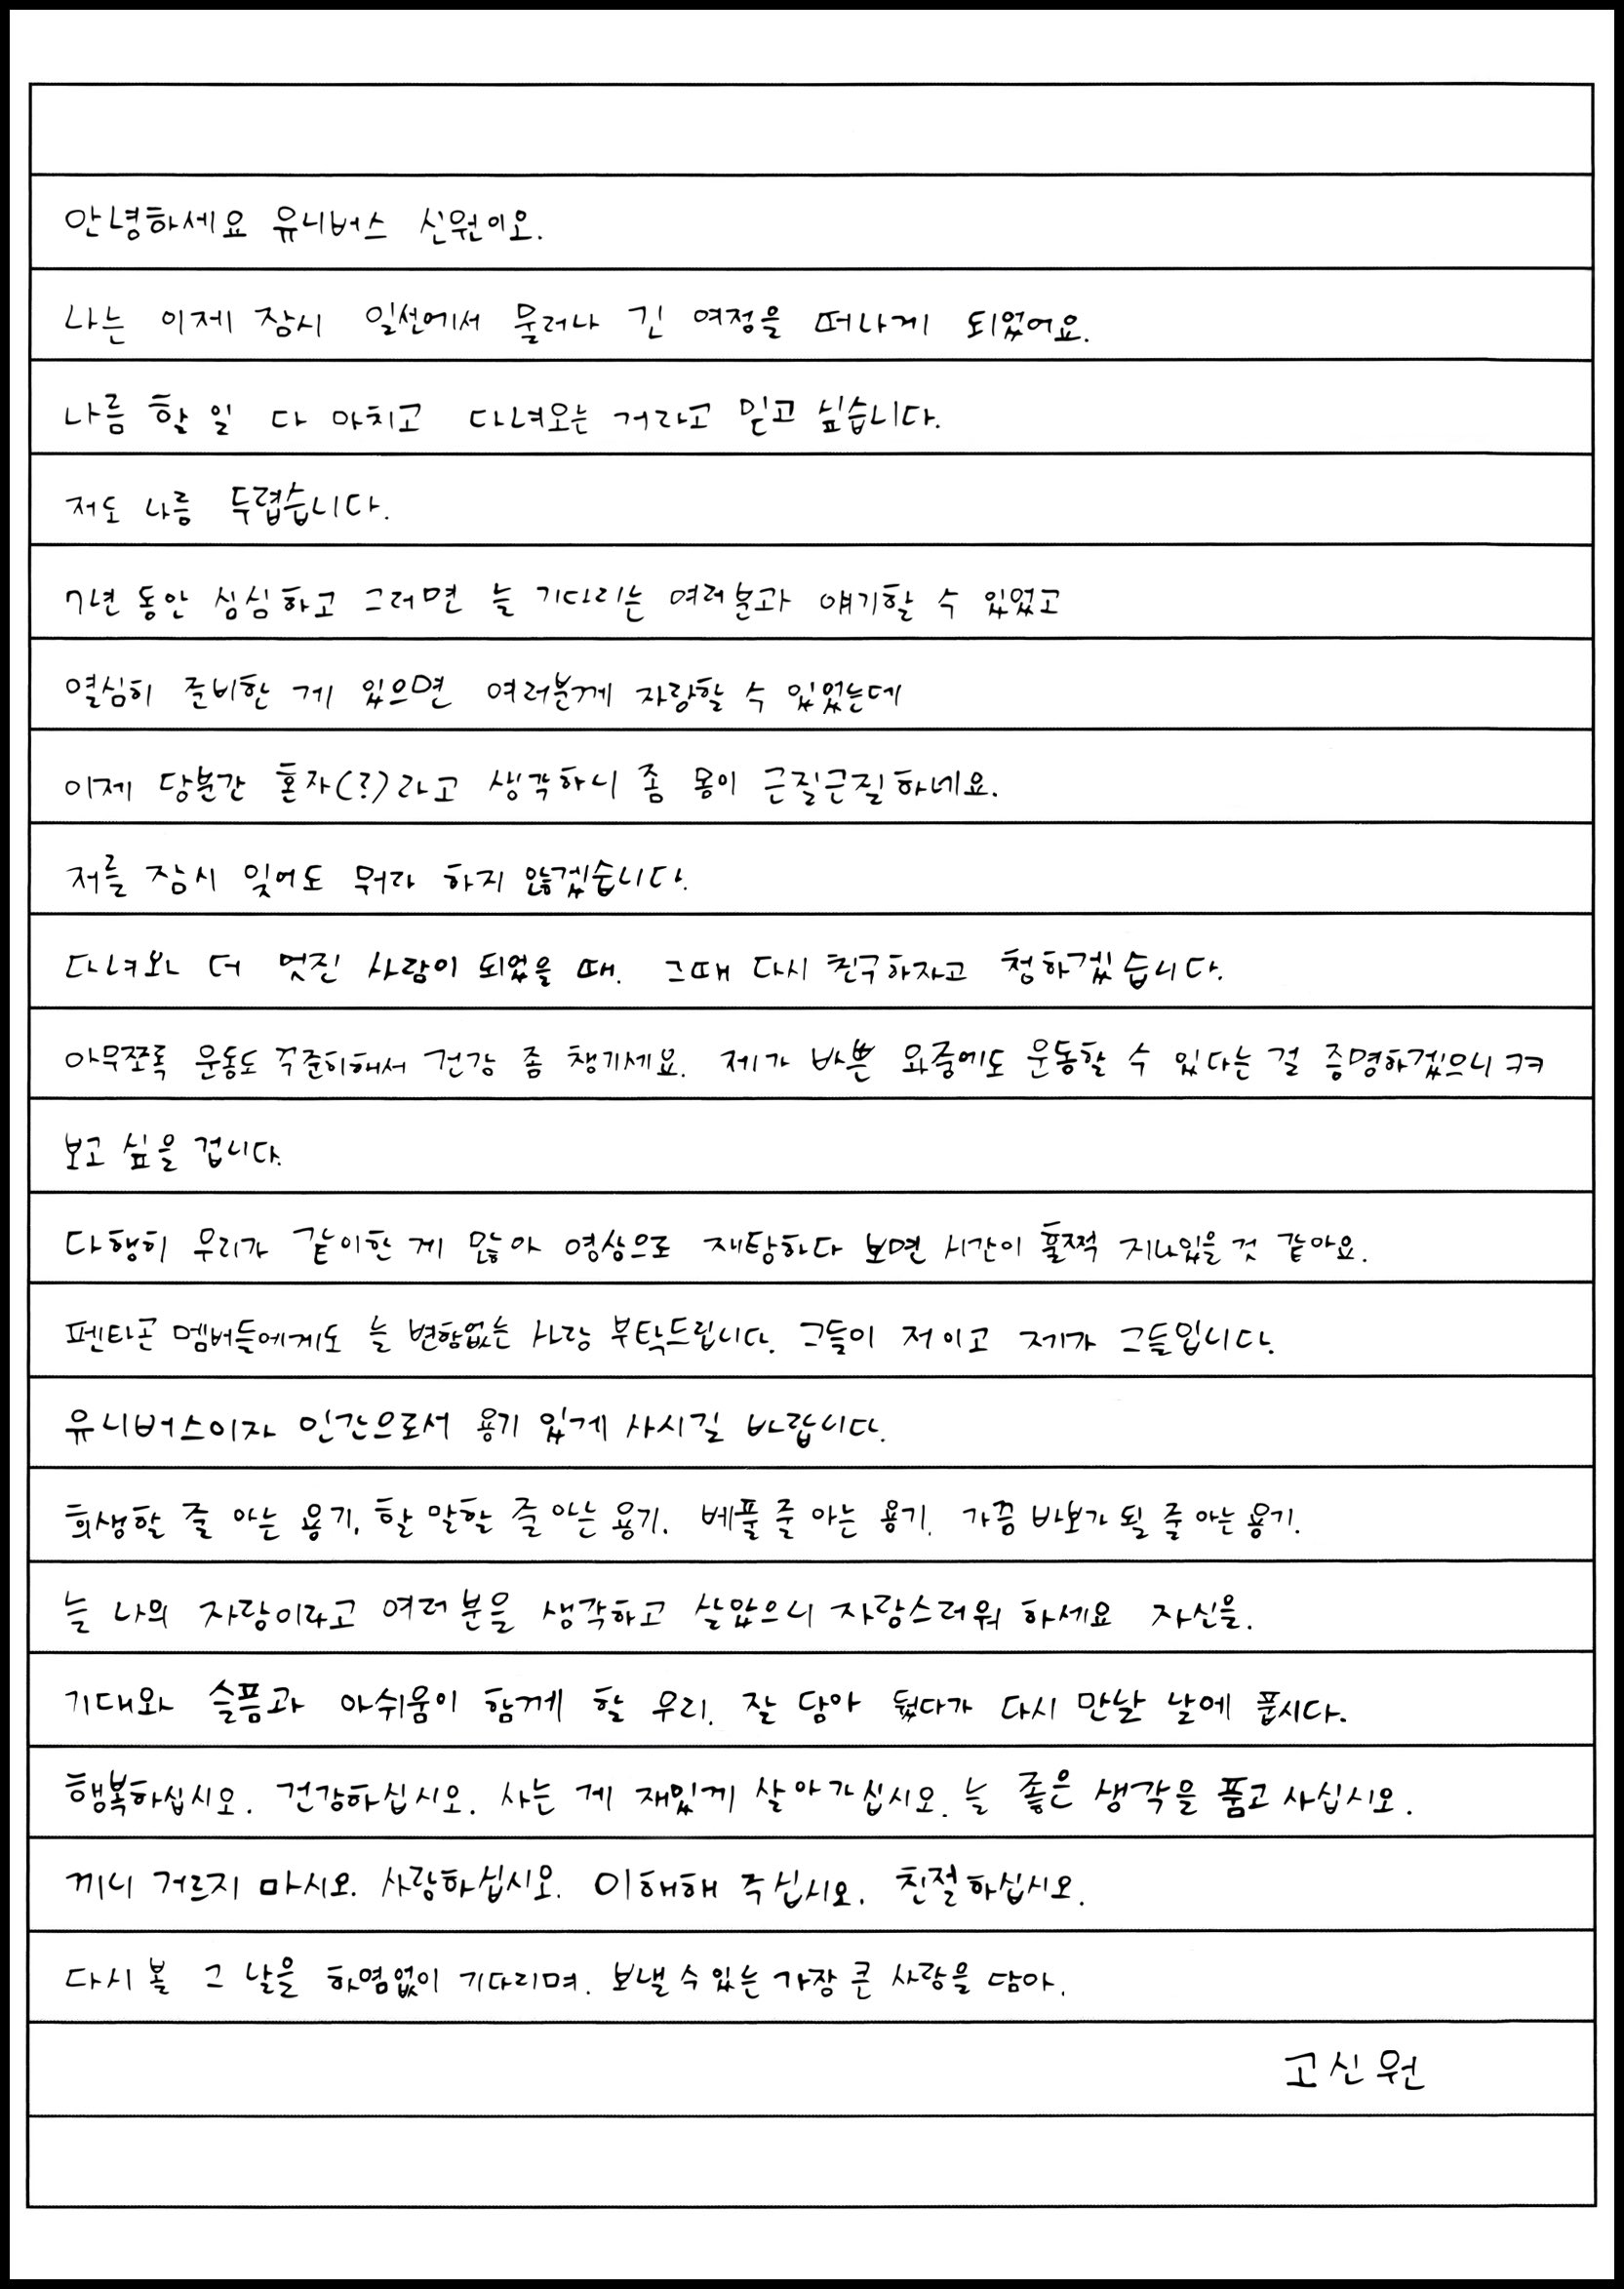 안녕하세요 유니버스 신원이오.
나는 이제 잠시 일선에서 물러나 긴 여정을 떠나게 되었어요.
나름 할 일 다 마치고 다녀오는 거라고 믿고 싶습니다.
저도 나름 두렵습니다.
7년 동안 심심하고 그러면 늘 기다리는 여러분과 얘기할 수 있었고
열심히 준비한 게 있으면 여러분께 자랑할 수 있었는데
이제 당분간 혼자(?)라고 생각하니 좀 몸이 근질근질하네요.
저를 잠시 잊어도 뭐라 하지 않겠습니다.
다녀와 더 멋진 사람이 되었을 때. 그때 다시 친구하자고 청하겠습니다.
아무쪼록 운동도 꾹준히해서 건강 좀 챙기세요. 제가 바쁜 와중에도 운동할 수 있다는 걸 증명하겠으니 ㅋㅋ
보고 싶을 겁니다.
다행히 우리가 같이한 게 많아 영상으로 재탕하다 보면 시간이 훌쩍 지나있을 것 같아요.
펜타곤 멤버들에게도 늘 변함없는 사랑 부탁드립니다. 그들이 저이고 제가 그들입니다.
유니버스이자 인간으로서 용기 있게 사시길 바랍니다.
희생할 줄 아는 용기. 할 말할 줄 아는 용기. 베풀 줄 아는 용기. 가끔 바보가 될 줄 아는 용기.
늘 나의 자랑이라고 여러분을 생각하고 살았으니 자랑스러워 하세요 자신을.
기대와 슬픔과 아쉬움이 함께 할 우리. 잘 담아 뒀다가 다시 만날 날에 풉시다.
행복하십시오. 건강하십시오. 사는 게 재밌게 살아가십시오. 늘 좋은 생각을 품고 사십시오.
끼니 거르지 마시오. 사랑하십시오. 이해해 주십시오. 친절하십시오.
다시 볼 그 날을 하염없이 기다리며. 보낼 수 있는 가장 큰 사랑을 담아.
고신원